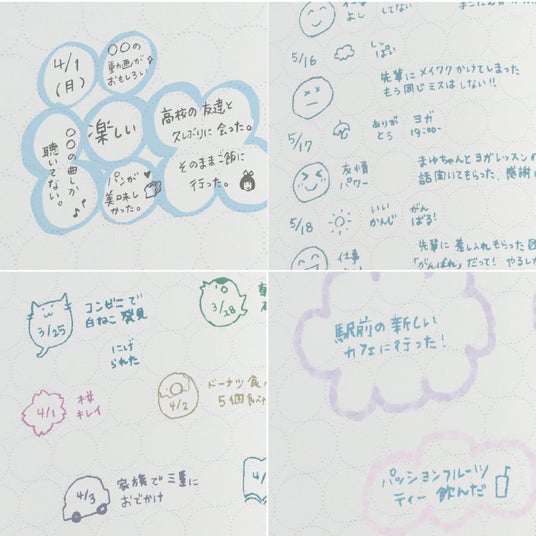 4/1
(月)
〇〇の
動画が
おもしろい
楽しい
〇〇の曲しか
聴いてない。
パンが
美味し
かった。
高校の友達と
久しぶりに会った。
そのままご飯に
行った。
よし
してない
5/16
しん
ぱい
先輩にメイワクかけてしまった
もう同じミスはしない!!
5/17
ありが
とう
ヨガ
19:00〜
友情
パワー
まゆちゃんとヨガレッスン
話聞いてもらった。感謝
5/18
いい
かんじ
がん
ばる!
仕事
先輩に差し入れもらった
「がんばれ」だって!
3/25
コンビニで
白ねこ発見
にげ
られた
3/28
4/1
桜
キレイ
4/2
ドーナツ食
5個食べ
4/3
家族で三重に
おでかけ
4/
駅前の新しい
カフェに行った!
パッションフルーツ
ティー飲んだ